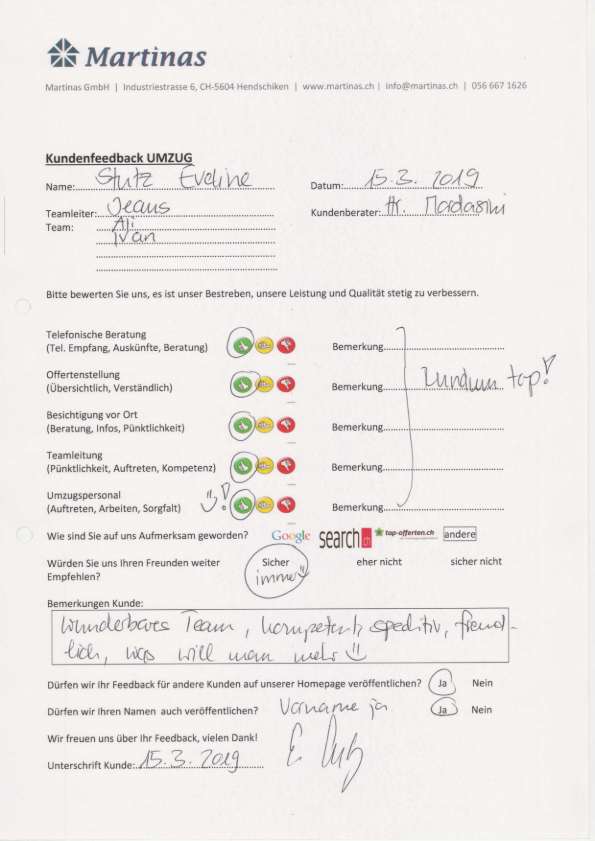 Martinas
Martinas GmbH | Industriestrasse 6, CH-5604 Hendschiken | www.martinas.ch | info@martinas.ch | 056 667 1626
Kundenfeedback UMZUG
Name: Stutz Eveline Datum: 15.3. 2019
Teamleiter: Jeans Kundenberater: Hr. Mardasini
Team: Ali
Ivan
Bitte bewerten Sie uns, es ist unser Bestreben, unsere Leistung und Qualität stetig zu verbessern.
Telefonische Beratung
(Tel. Empfang, Auskünfte, Beratung) Bemerkung
Offertenstellung
(Übersichtlich, Verständlich) Bemerkung Rundum top!
Besichtigung vor Ort
(Beratung, Infos, Pünktlichkeit) Bemerkung
Teamleitung
(Pünktlichkeit, Auftreten, Kompetenz) Bemerkung
Umzugspersonal
(Auftreten, Arbeiten, Sorgfalt) ! Bemerkung
Wie sind Sie auf uns Aufmerksam geworden? Google search.ch top-offerten.ch andere
Würden Sie uns Ihren Freunden weiter Sicher eher nicht sicher nicht
Empfehlen? immer
Bemerkungen Kunde:
Wunderbares Team, kompetent, speditiv, freund-
lich, was will man mehr
Dürfen wir Ihr Feedback für andere Kunden auf unserer Homepage veröffentlichen? Ja Nein
Dürfen wir Ihren Namen auch veröffentlichen? Vorname ja Ja Nein
Wir freuen uns über Ihr Feedback, vielen Dank!
Unterschrift Kunde: 15.3. 2019 E. Stutz